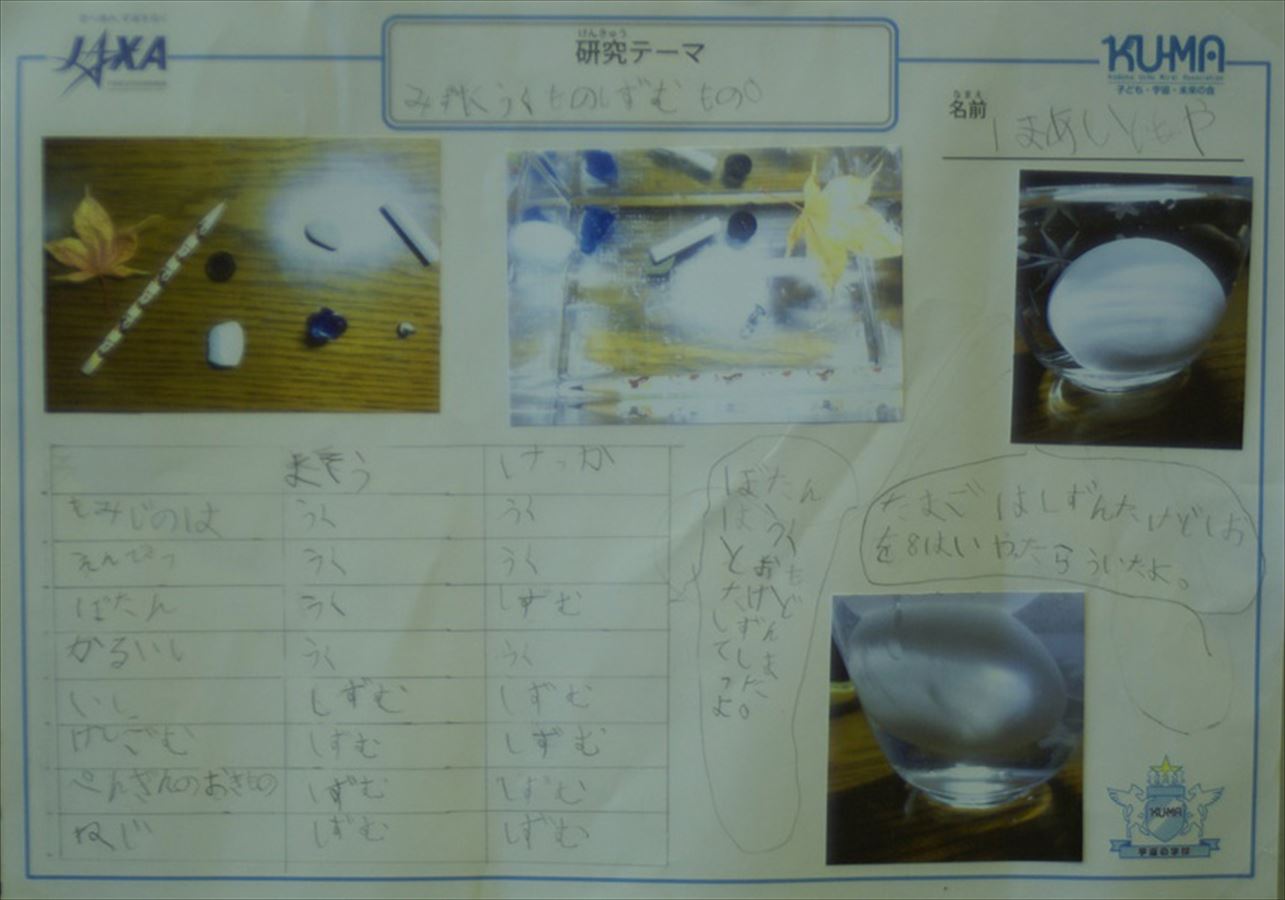 JAXA
けんきゅう
研究テーマ
みずにうくものしずむもの
KU-MA
Kodomo Uchu Mirai Association
子ども・宇宙・未来の会
なまえ
名前
よそう けっか
もみじのは うく うく
えんぴつ うく うく
ぼたん うく しずむ
かるいし うく うく
いし しずむ しずむ
けしごむ しずむ しずむ
ぺんぎんのおきもの しずむ しずむ
ねじ しずむ しずむ
ぼたん
はうく
とおも
たけど
しずん
てしま
っだ
よ。
たまごはしずんたけどしお
を8はいやたらういたよ。
KU-MA
宇宙の学校